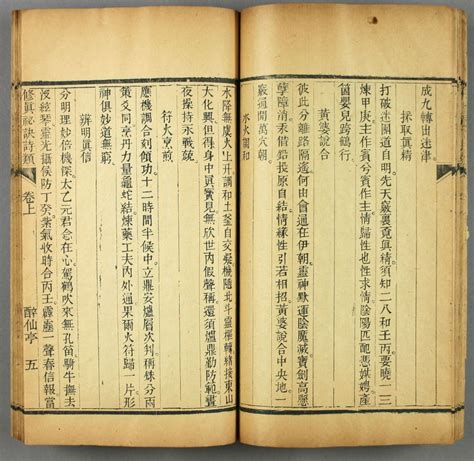 成九轉出迷津
採取眞精
打破迷團道自明先天竅裏覓眞精須知二八和壬丙要曉一三
煉甲庚主作賓兮賓作主情歸性也性求情陰陽匹配憑媒娉產
箇嬰兒跨鶴行
黃婆說合
彼此分離路隔遙何由會過在伊朝靈神默運寶劍高懸
孽障消汞借鉛投原自結情緣性引若相招黃婆說合中央地一
竅通開萬穴朝
水火和
水降無虞火上升調和土釜自交凝機隨北斗靈樞轉緒接東山
大化興但得身中眞實見無欣世內假聲稱還須爐鼎防範
夜操持示戰兢
符火烹煎
應機調合刻領功十二時開半候中立鼎安爐層次判稱銖分兩
策爻同烹丹力量龜蛇結煉藥工夫內外通果爾火符歸一片形
神俱妙道無窮
辨明眞信
分明理妙倍機深太乙元君念在心駕鶴吹來無孔笛騎牛撫去
沒絃琴靈光攝候防丁癸素氣收時合丙壬霹靂一聲春信報當
修眞祕訣詩類 卷上 醉仙亭 五